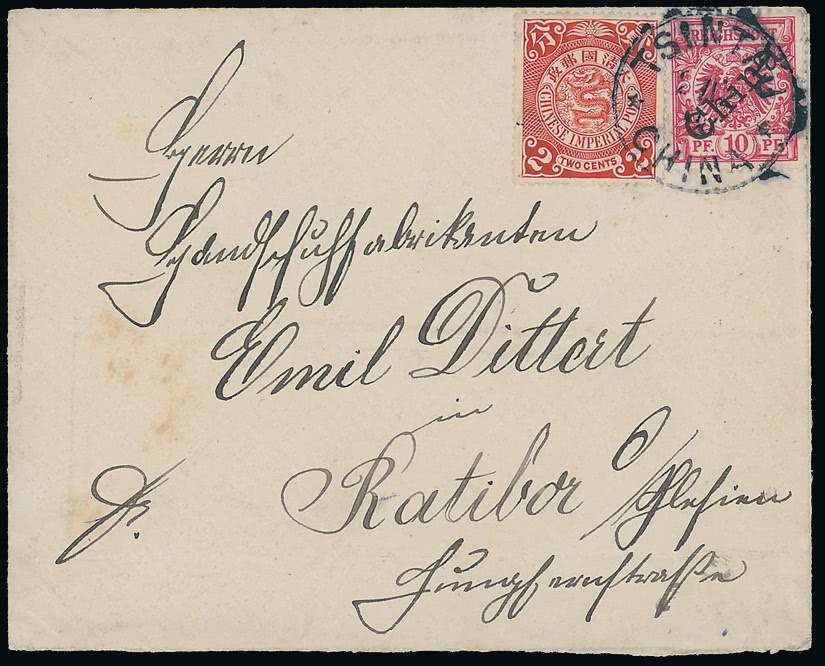 分 分
大清國郵政
CHINESE IMPERIAL POST
2 TWO CENTS 2
REICHSPOST
China
PF. 10 PF.
TSINTAU
CHINA
Herrn
Handschuhfabrikanten
Emil Dittert
in
Ratibor O/Schlesien
Jungfernstraße